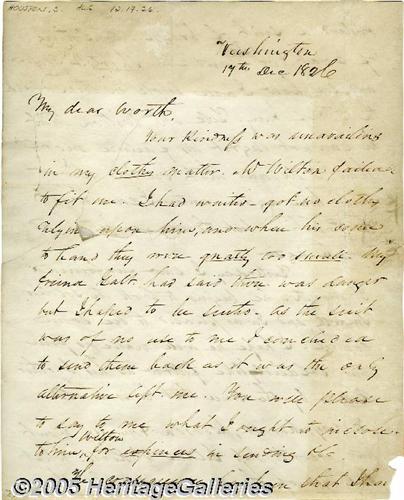 HOUSTON, S. ALS 12.19.26
Washington
17th Dec 1826
My dear Worth.
Your kindness was unavailing
in my cloths matter. Mr Wilton failed
to fit me. I had waited got no cloths
relying upon him, and when his came
to hand they were greatly too small. My
friend Galt had said there was danger
but I hoped to be suited. As the suit
was of no use to me I concluded
to send them back as it was the only
alternative left me. You will please
to say to me what I ought to inclose
Wilton
to him, for expences in sending &c
that I have
© 2005 HeritageGalleries